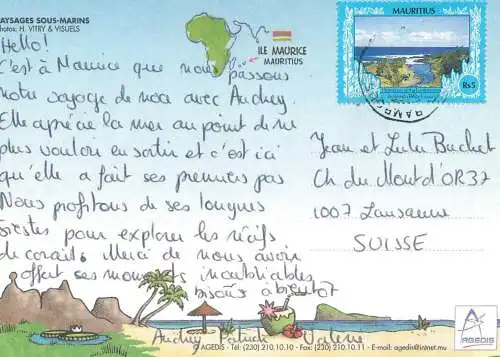 PAYSAGES SOUS-MARINS
Photos: H. VITRY & VISUELS
ILE MAURICE
MAURITIUS
MAURITIUS
Rs5
Hello!
C'est à Maurice que nous passons
notre voyage de noce avec Audrey.
Elle apprécie la mer au point de ne
plus vouloir en sortir et c'est ici
qu'elle a fait ses premiers pas
Nous profitons de ses longues
siestes pour explorer les récifs
de corail. Merci de nous avoir
offert ses moments inoubliables
bisous à bientôt
Audrey Patrick Valérie
Jean et Lulu Buchet
Ch du Mont d'OR 37
1007 Lausanne
SUISSE
© AGEDIS - Tel: (230) 210.10.10 - Fax: (230) 210.10.11 - E-mail: agedis@intnet.mu
AGEDIS